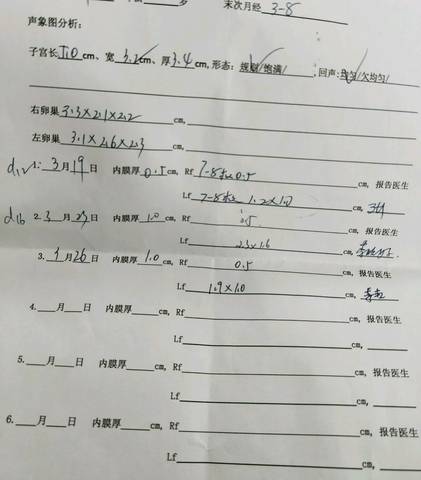 岁 末次月经 3-8
声象图分析:
子宫长5.0cm、宽3.2cm、厚3.4cm,形态:规则/饱满/,回声:均匀/欠均匀/
右卵巢 3.3×2.1×2.2 cm,
左卵巢 3.1×2.6×2.3 cm,
d12 1. 3月19日 内膜厚0.5cm, Rf 7-8枚 0.5 cm, 报告医生
Lf 7-8枚 1.2×1.0 cm,
d16 2. 3月23日 内膜厚1.0cm, Rf 0.5 cm, 报告医生
Lf 2.3×1.6 cm,
3. 3月26日 内膜厚1.0cm, Rf 0.5 cm, 报告医生
Lf 1.9×1.0 cm,
4.___月___日 内膜厚____cm, Rf cm, 报告医生
Lf cm,
5.___月___日 内膜厚____cm, Rf cm, 报告医生
Lf cm,
6.___月___日 内膜厚____cm, Rf cm, 报告医生
Lf cm,